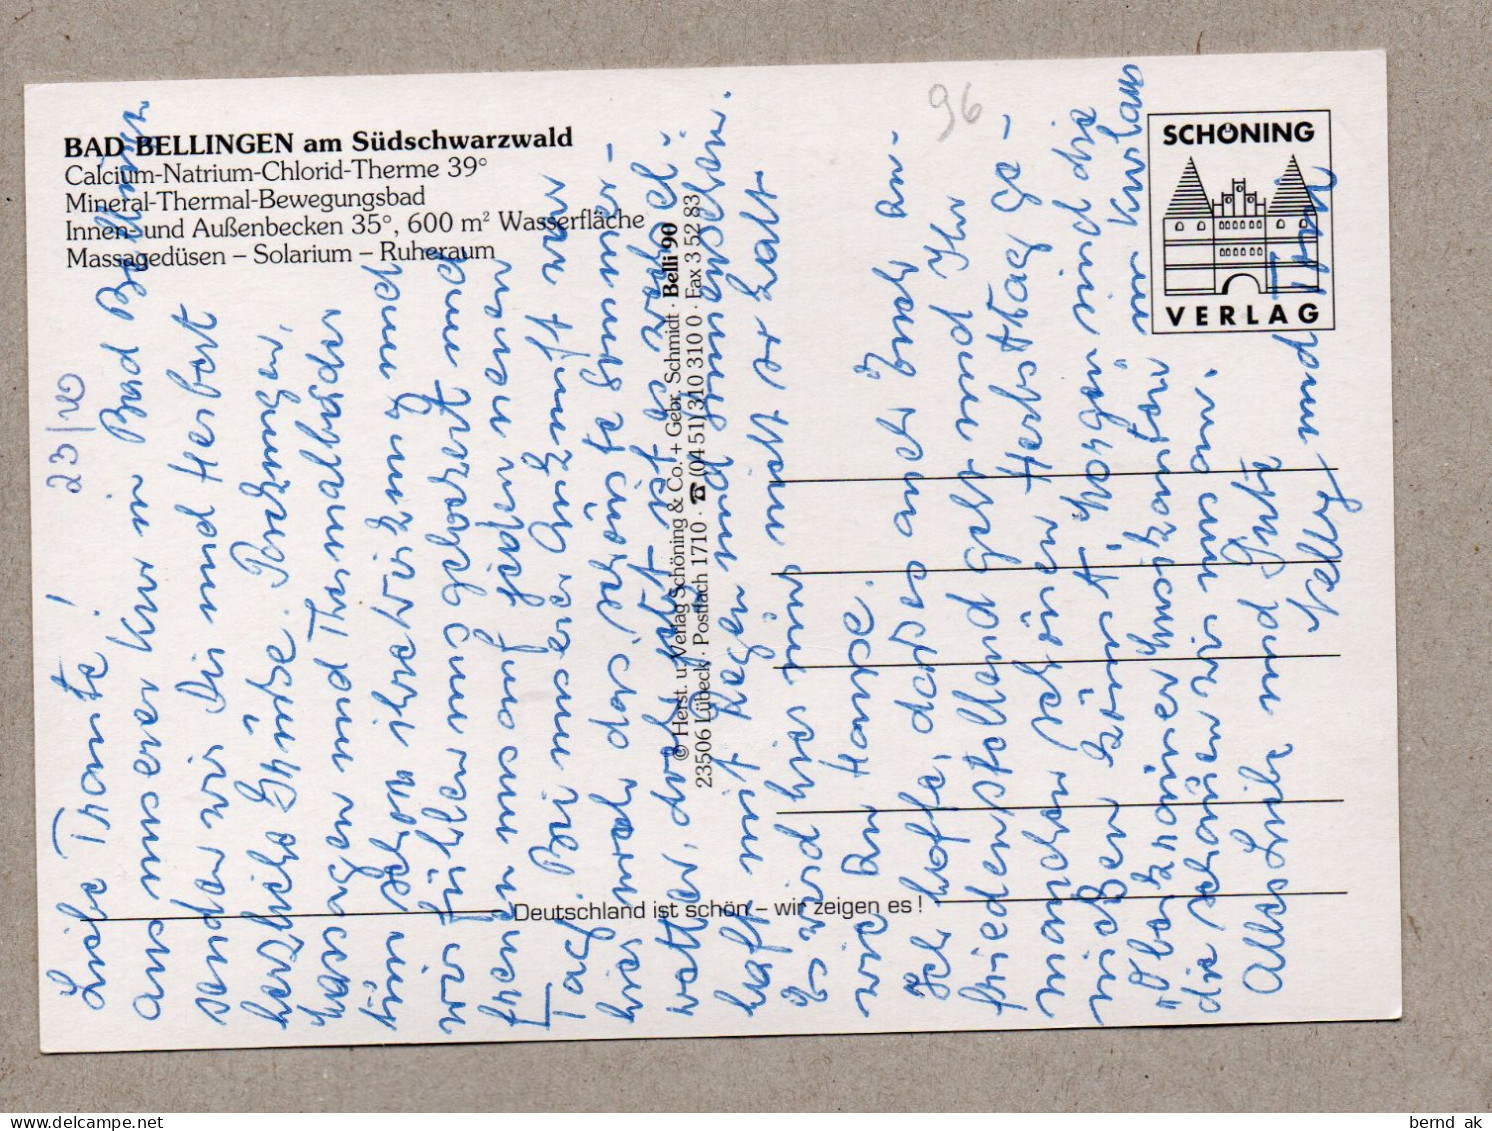 BAD BELLINGEN am Südschwarzwald
Calcium-Natrium-Chlorid-Therme 39°
Mineral-Thermal-Bewegungsbad
Innen- und Außenbecken 35°, 600 m² Wasserfläche
Massagedüsen – Solarium – Ruheraum
96
SCHÖNING
VERLAG
© Herst. u. Verlag Schöning & Co. + Gebr. Schmidt · Belli 90
23506 Lübeck · Postfach 1710 · ☎ (04 51) 310 310 0 · Fax 3 52 83
Deutschland ist schön – wir zeigen es!
23/10
Liebe Traute!
Aus unser Kur in Bad Bellingen
senden wir Dir und Herbert
herzliche Grüße. Packungen,
Massagen und Thermalbäder
tun schon ihre Wirkung und
wir fühlen uns gelockert und
freuen uns auf jeden neuen
Tag. Bei unserer Ankunft war
hier noch der herbst
wetter, doch jetzt ist es wechsel-
haft mit Regen und
Es wird hier nie so kalt
wie zu Hause.
Ich hoffe, dass es auch Euch zu-
friedenstellend geht und Ihr
manchen schönen Herbsttag ge-
nießen könnt. Morgen sind die
im Kurhaus
die schauen wir uns an.
Alles Liebe und Gute